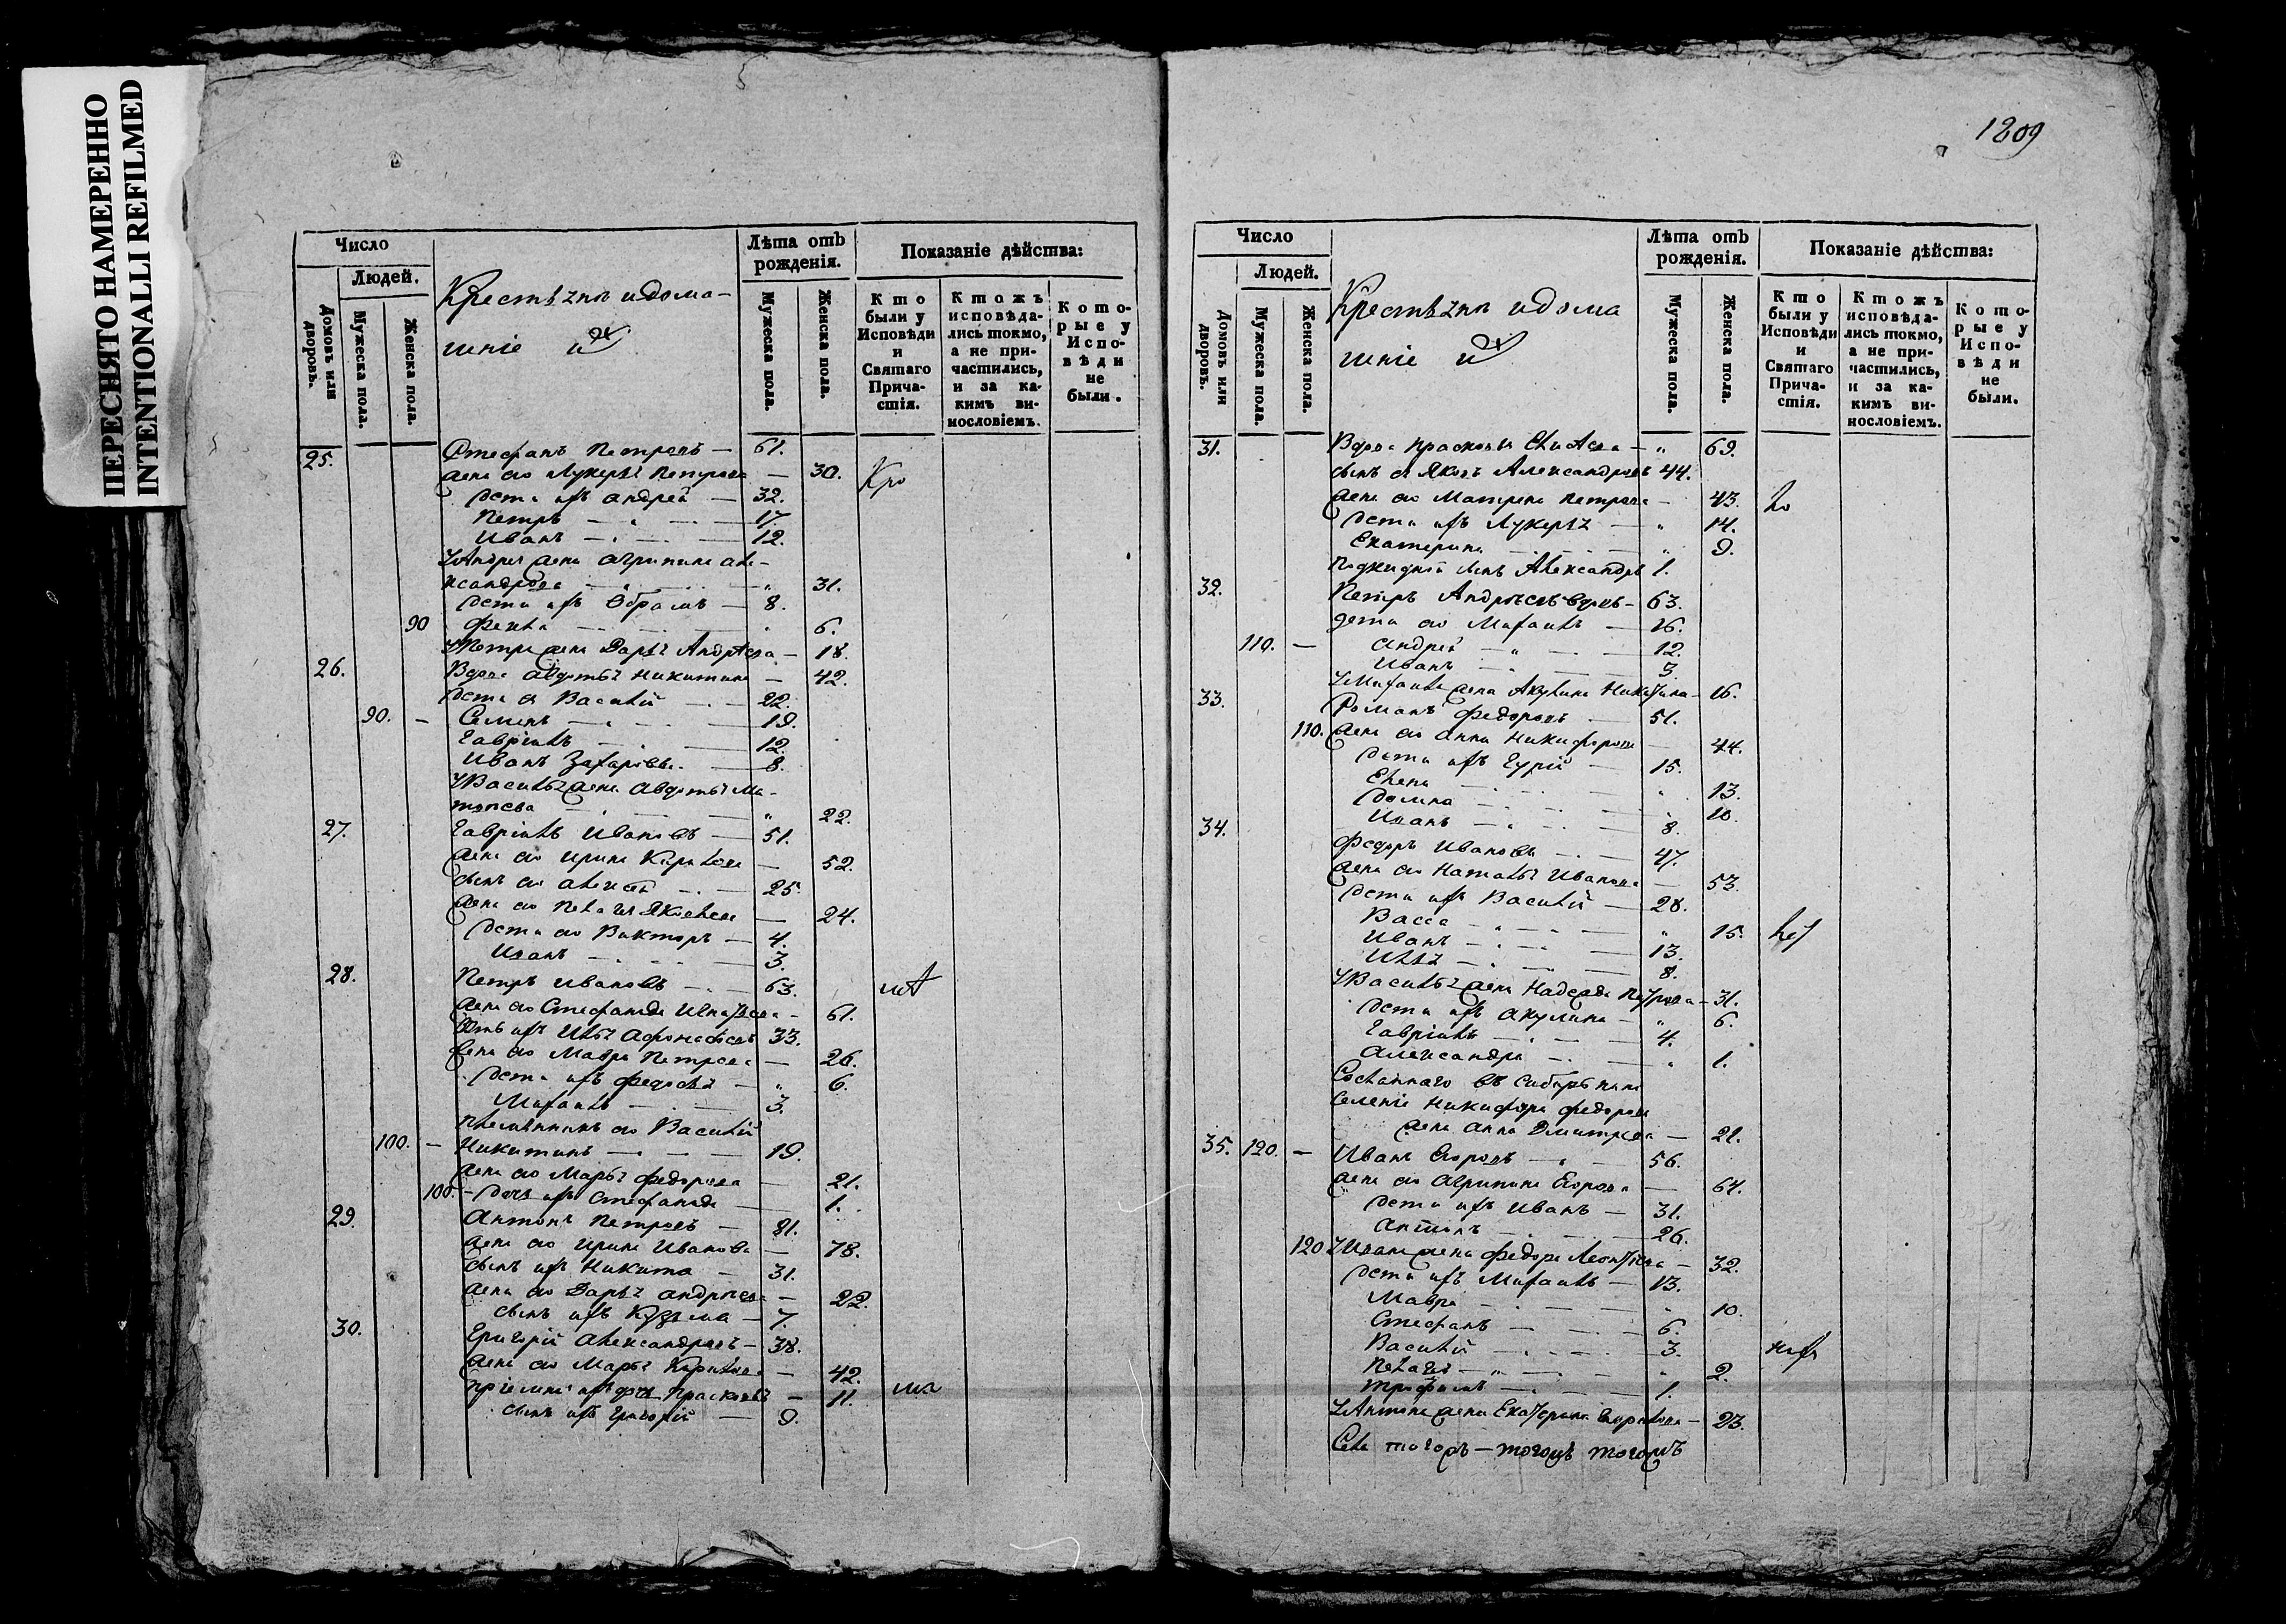 ПЕРЕСНЯТО НАМЕРЕННО
INTENTIONALLI REFILMED
1209
Число
Людей.
Домовъ или дворовъ.
Мужеска пола.
Женска пола.
Крестьяне и дома-
шніе их
Лѣта отъ рождения.
Мужеска пола.
Женска пола.
Показаніе дѣйства:
Кто были у Исповѣди и Святаго Прича-стія.
Ктожъ исповѣда-лись токмо, а не при-частились, и за ка-кимъ ви-нословіемъ.
Кото-рые у Испо-вѣди не были.
25. Стефанъ Петровъ — 61.
жена его Лукерья Петрова — 30.
дети ихъ Андрей — 32.
Петръ — 17.
Иванъ — 12.
У Андрея жена Агрипина Але-
ксандрова — 31.
дети ихъ Абрамъ — 8.
90 Фекла — 6.
У Петра жена Дарья Андреева — 18.
26. Вдова Авдотья Никитина — 42.
дети ея Василий — 22.
90. — Семенъ — 19.
Гавріилъ — 12.
Иванъ Захаровъ — 8.
У Василья жена Авдотья Ма-
твеева — 22.
27. Гавріилъ Ивановъ — 51.
жена его Ирина Карпова — 52.
сынъ его Алексей — 25.
жена его Пелагея Яковлева — 24.
дети его Викторъ — 4.
Иванъ — 3.
28. Петръ Ивановъ — 63.
жена его Стефанида Игнатьева — 61.
ихъ Илья Афонасьевъ 33.
жена его Мавра Петрова — 26.
дети ихъ Федосья — 6.
Михаилъ — 3.
Племянникъ его Василий
100. — Никитинъ — 19.
жена его Марья Федорова — 21.
100. — дочь ихъ Стефанида — 1.
29. Антонъ Петровъ — 81.
жена его Ирина Иванова — 78.
сынъ ихъ Никита — 31.
жена его Дарья Андреева — 22.
сынъ ихъ Кузьма — 7.
30. Григорій Александровъ — 38.
жена его Марья — 42.
ихъ дочь Прасковья — 11.
сынъ ихъ Григорій — 9.
Число
Людей.
Домовъ или дворовъ.
Мужеска пола.
Женска пола.
Крестьяне и дома
шніе их
Лѣта отъ рождения.
Мужеска пола.
Женска пола.
Показаніе дѣйства:
Кто были у Исповѣди и Святаго Прича-стія.
Ктожъ исповѣда-лись токмо, а не при-частились, и за ка-кимъ ви-нословіемъ.
Кото-рые у Испо-вѣди не были.
31. Вдова Прасковья — 69.
сынъ ея Яковъ Александровъ 44.
жена его Матрена Петрова — 43.
дети ихъ Лукерья — 14.
Екатерина — 9.
сынъ Александръ 1.
32. Петръ Андреевъ вдовъ — 63.
дети его Михаилъ — 16.
110. — Андрей — 12.
Иванъ — 3.
У Михаила жена Акулина Никитина — 16.
33. Романъ Федоровъ — 51.
110. жена его Анна Никифорова — 44.
дети ихъ Гурій — 15.
Елена — 13.
Домна — 10.
Иванъ — 8.
34. Федоръ Ивановъ — 47.
жена его Наталья Иванова — 53.
дети ихъ Василий — 28.
Васса — 15.
Иванъ — 13.
Илья — 8.
У Василья жена Надежда Петрова — 31.
дети ихъ Акулина — 6.
Гавріилъ — 4.
Александра — 1.
Сосланнаго въ Сибирь на по
селеніе Никифора Федорова
жена Анна Дмитриева — 21.
35. 120. — Иванъ Егоровъ — 56.
жена его Агрипина Егорова — 64.
дети ихъ Иванъ — 31.
Антонъ — 26.
120 У Ивана жена Федора Леонтьева — 32.
дети ихъ Михаилъ — 13.
Мавра — 10.
Стефанъ — 6.
Василий — 3.
Пелагея — 2.
Трофимъ — 1.
У Антона жена Екатерина — 23.